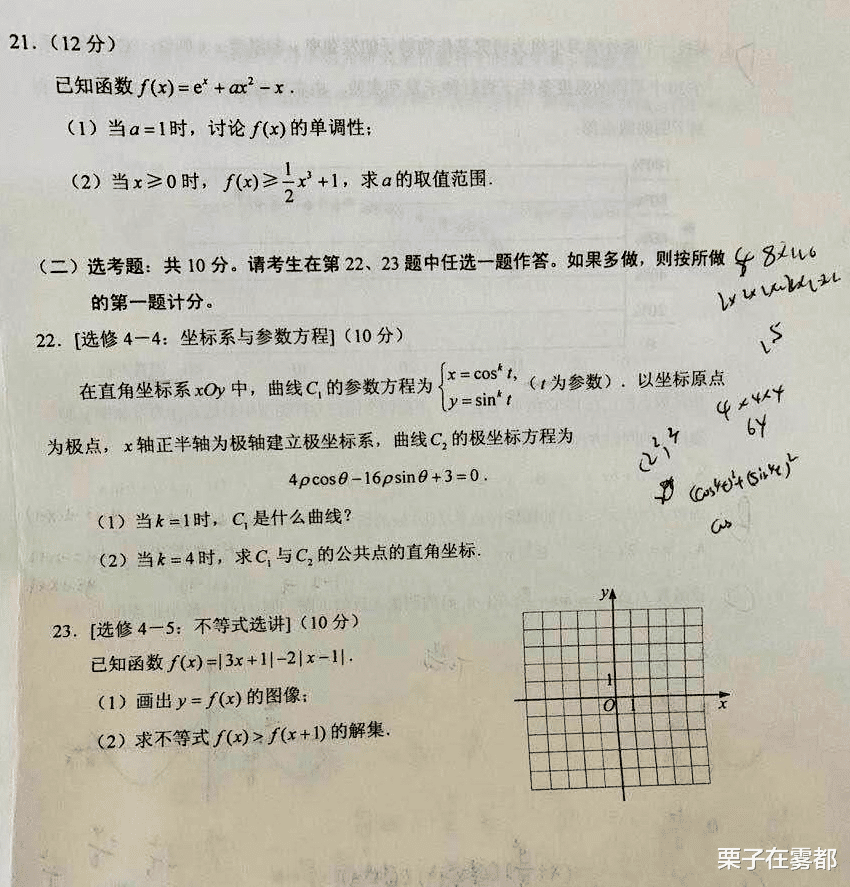 21.（12 分）
已知函数 f(x)=eˣ+ax²-x．
（1）当a=1时，讨论 f(x)的单调性；
（2）当x≥0 时，f(x)≥1/2 x³+1，求a的取值范围．
（二）选考题：共 10 分。请考生在第 22、23 题中任选一题作答。如果多做，则按所做
的第一题计分。
22．[选修 4－4：坐标系与参数方程]（10 分）
在直角坐标系 xOy 中，曲线C₁的参数方程为 { x=cosᵏ t, y=sinᵏ t （t 为参数）．以坐标原点
为极点，x 轴正半轴为极轴建立极坐标系，曲线C₂的极坐标方程为
4ρcosθ-16ρsinθ+3=0．
（1）当k=1时，C₁是什么曲线？
（2）当k=4时，求C₁与C₂的公共点的直角坐标．
4×4×4
64
23．[选修 4－5：不等式选讲]（10 分）
已知函数 f(x)=|3x+1|-2|x-1|．
（1）画出 y=f(x)的图像；
（2）求不等式 f(x)>f(x+1)的解集．
y
1
O 1 x
栗子在雾都